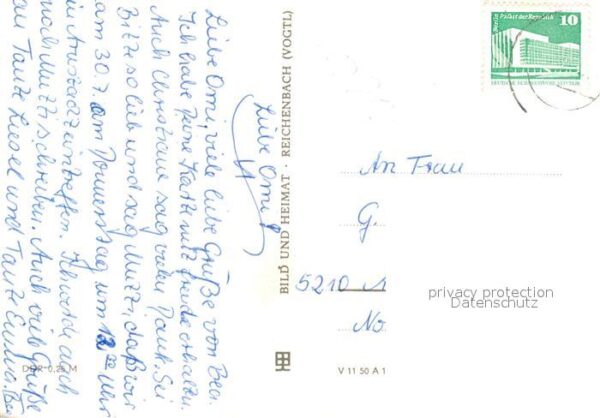 Liebe Omi, viele liebe Grüße von
Ich habe Deine Karte mit Freude erhalten.
Auch Christiane sag vielen Dank. Sei
Bitte so lieb und sag Mutti, daß wir
am 30.7. am Donnerstag um 18 00 Uhr
in eintreffen. Ich werde auch
nach Mutti schreiben. Auch viele Grüße
an Tante Liesel und Tante
Liebe Omi
BILD UND HEIMAT · REICHENBACH (VOGTL)
Berlin Palast der Republik
10
DEUTSCHE DEMOKRATISCHE REPUBLIK
An Frau
G.
5210 A
No.
privacy protection
Datenschutz
DDR 0,25 M
V 11 50 A 1